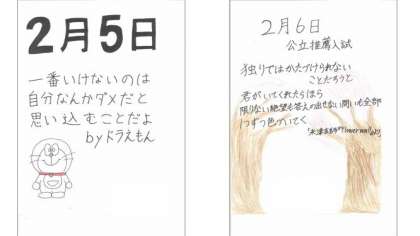 2月5日
一番いけないのは
自分なんかダメだと
思い込むことだよ
byドラえもん
2月6日
公立推薦入試
独りではかたづけられない
ことだろうと
君がいてくれたらほら
限りない絶望も答えの出せない問いも全部
1つずつ色づいていく